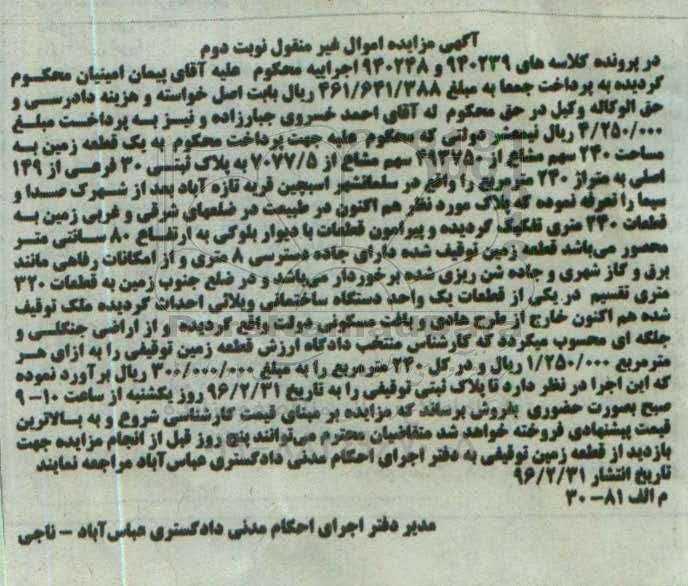 آگهی مزایده اموال غیر منقول نوبت دوم
در پرونده کلاسه های ۹۴۰۲۳۹ و ۹۴۰۲۴۸ اجراییه محکوم علیه آقای پیمان امینیان محکوم
گردیده به پرداخت جمعا به مبلغ ۴۶۱/۶۳۱/۳۸۸ ریال بابت اصل خواسته و هزینه دادرسی و
حق الوکاله وکیل در حق محکوم له آقای احمد خسروی جبارزاده و نیز به پرداخت مبلغ
۴/۲۵۰/۰۰۰ ریال نیمعشر دولتی که محکوم علیه جهت پرداخت محکوم به یک قطعه زمین به
مساحت ۲۴۰ سهم مشاع از ۴۹۳۷۵۰ سهم مشاع از ۷۰۷۷/۵ به پلاک ثبتی ۳۰ فرعی از ۱۴۹
اصلی به متراژ ۲۴۰ مترمربع را واقع در سلمانشهر اسبچین قریه تازه آباد بعد از شهرک صدا و
سیما را تعرفه نموده که پلاک مورد نظر هم اکنون در طبیعت در ضلعهای شرقی و غربی زمین به
قطعات ۲۴۰ متری تفکیک گردیده و پیرامون قطعات با دیوار بلوکی به ارتفاع ۸۰ سانتی متر
محصور می‌باشد قطعه زمین توقیف شده دارای جاده دسترسی ۸ متری و از امکانات رفاهی مانند
برق و گاز شهری و جاده شن ریزی شده برخوردار می‌باشد و در ضلع جنوب زمین به قطعات ۳۲۰
متری تقسیم در یکی از قطعات یک واحد دستگاه ساختمانی ویلائی احداث گردیده ملک توقیف
شده هم اکنون خارج از طرح هادی و بافت مسکونی دولت واقع گردیده و از اراضی جنگلی و
جلگه ای محسوب میگردد که کارشناس منتخب دادگاه ارزش قطعه زمین توقیفی را به ازای هر
مترمربع ۱/۲۵۰/۰۰۰ ریال و در کل ۲۴۰ مترمربع را به مبلغ ۳۰۰/۰۰۰/۰۰۰ ریال برآورد نموده
که این اجرا در نظر دارد تا پلاک ثبتی توقیفی را به تاریخ ۹۶/۲/۳۱ روز یکشنبه از ساعت ۱۰-۹
صبح بصورت حضوری بفروش برساند که مزایده بر مبنای قیمت کارشناسی شروع و به بالاترین
قیمت پیشنهادی فروخته خواهد شد متقاضیان محترم می‌توانند پنج روز قبل از انجام مزایده جهت
بازدید از قطعه زمین توقیفی به دفتر اجرای احکام مدنی دادگستری عباس‌آباد مراجعه نمایند
تاریخ انتشار ۹۶/۲/۳۱
م الف ۸۱-۳۰
مدیر دفتر اجرای احکام مدنی دادگستری عباس‌آباد - ناجی